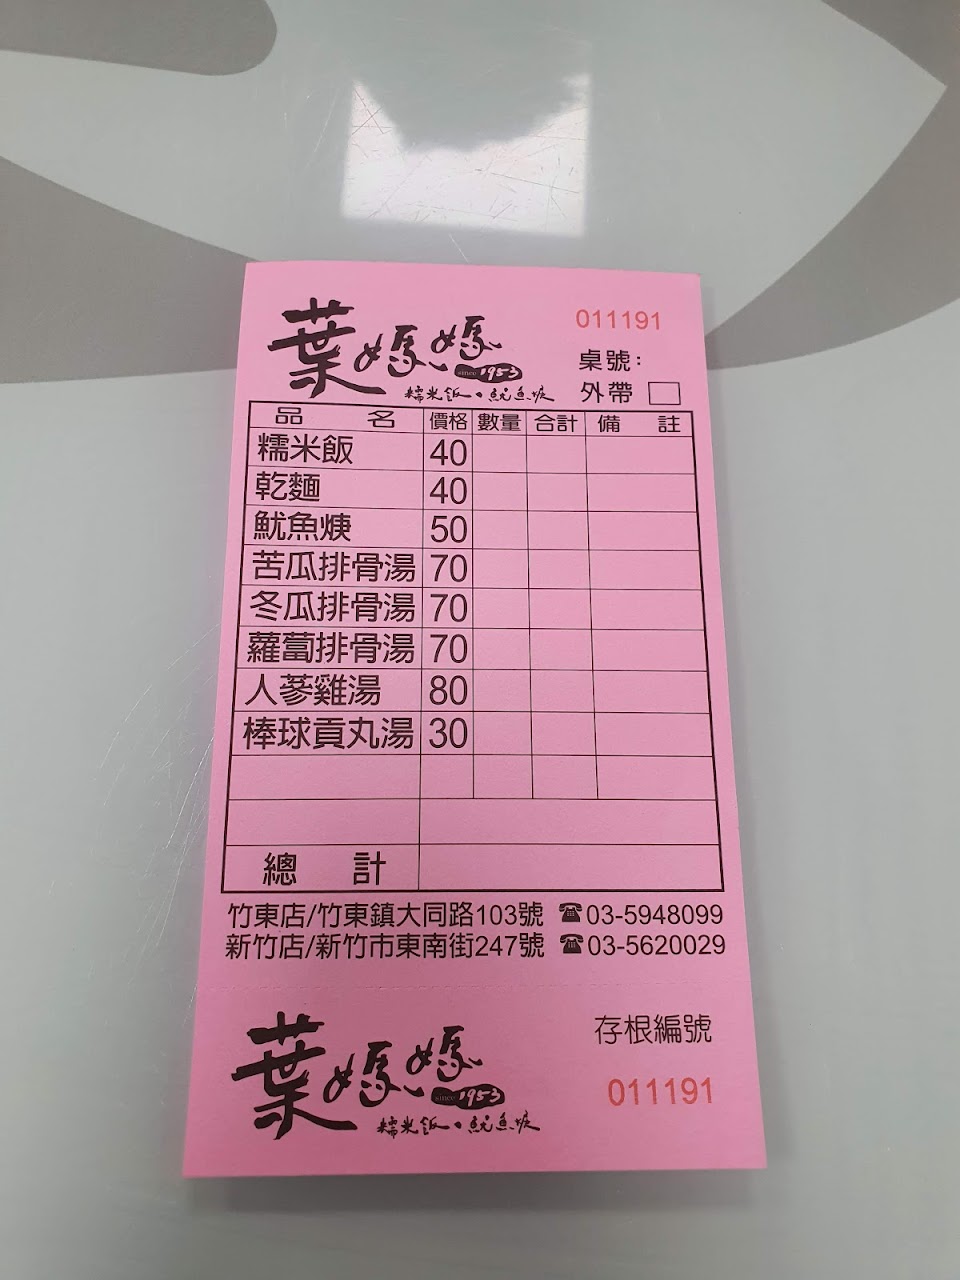 葉媽媽
since 1953
糯米飯・魷魚焿
011191
桌號：
外帶
品名 價格 數量 合計 備註
糯米飯 40
乾麵 40
魷魚焿 50
苦瓜排骨湯 70
冬瓜排骨湯 70
蘿蔔排骨湯 70
人蔘雞湯 80
棒球貢丸湯 30
總計
竹東店/竹東鎮大同路103號 ☎03-5948099
新竹店/新竹市東南街247號 ☎03-5620029
葉媽媽
since 1953
糯米飯・魷魚焿
存根編號
011191